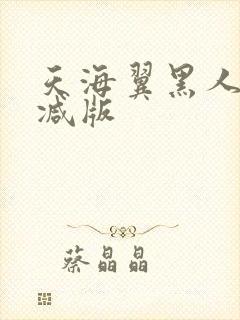 天海翼黑人
减版
蔡晶晶